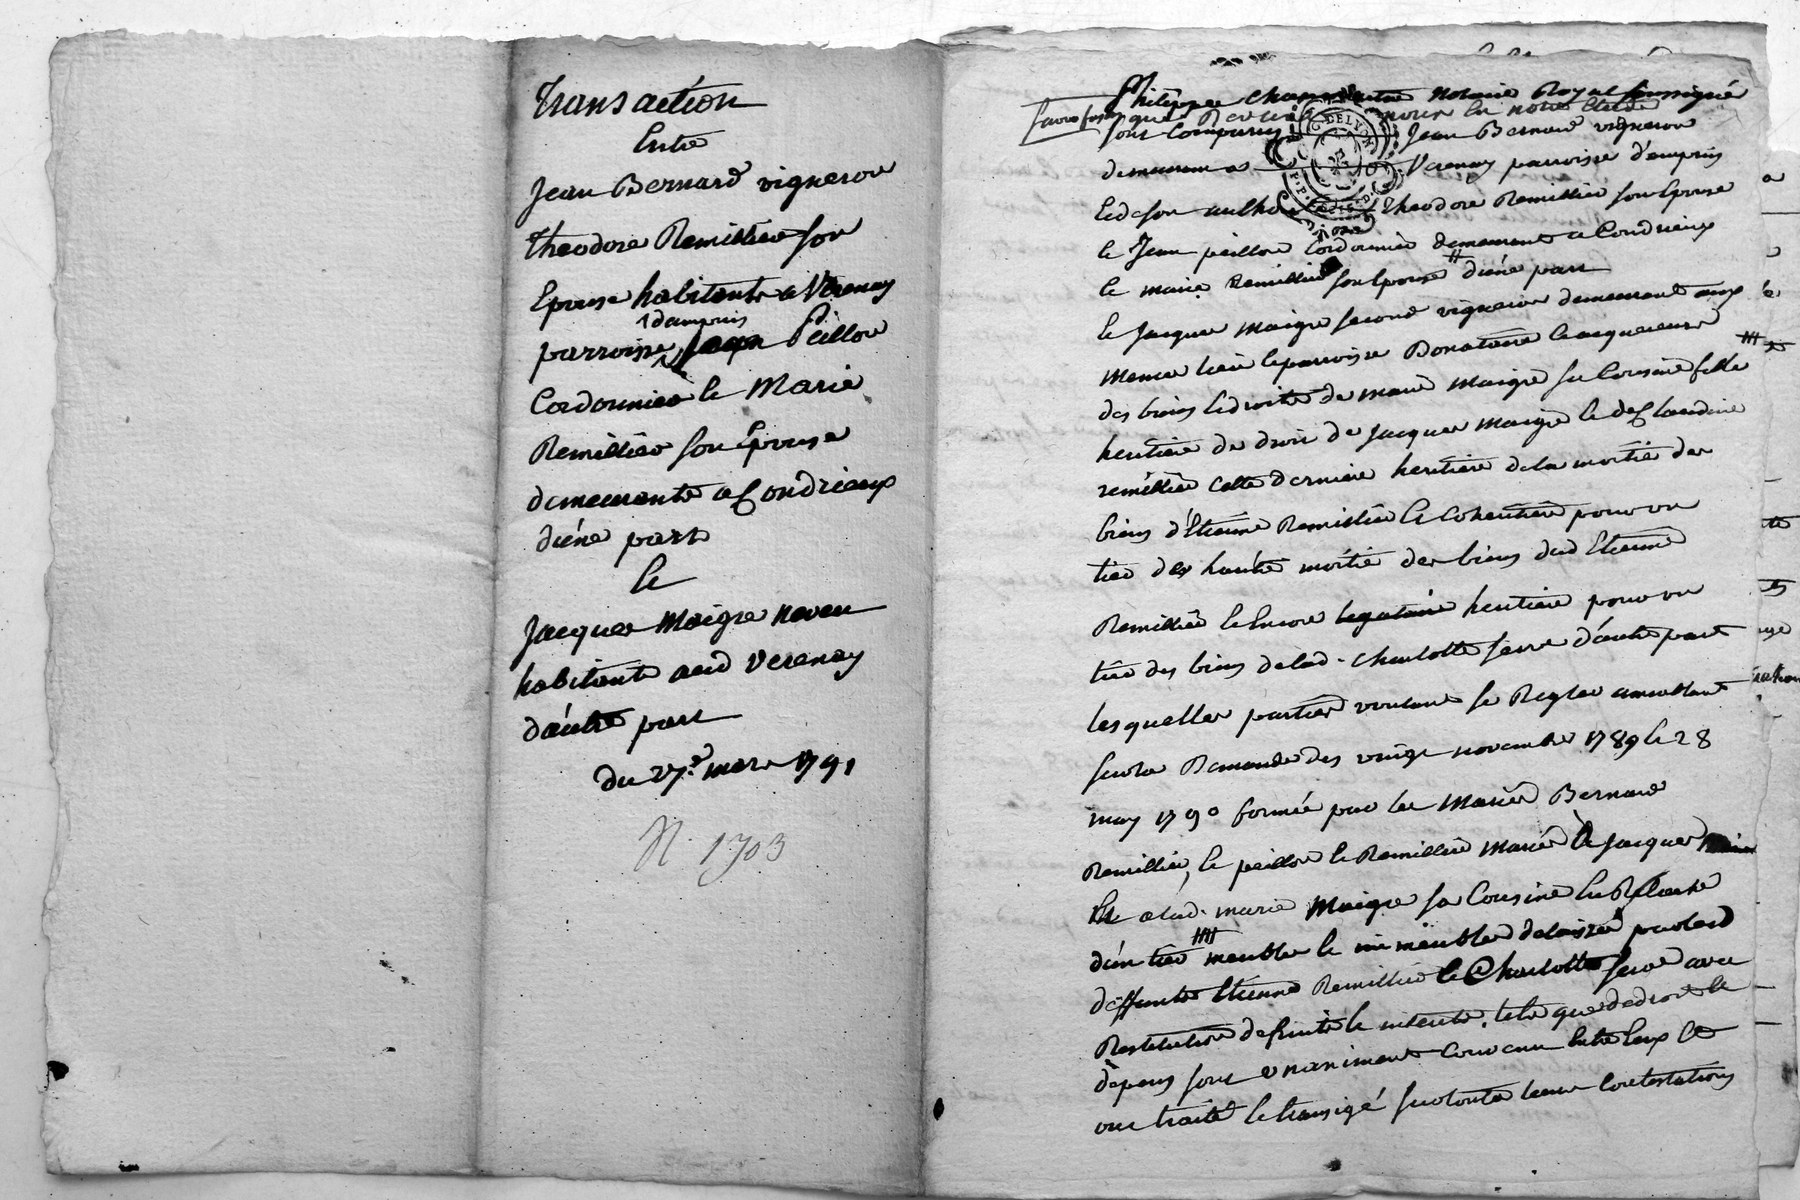 Transaction
Entre
Jean Bernard vigneron
Theodore Remillier son
Epouse habitants a Verenay
parroisse d'ampuis Jean Peillon
Cordonnier et Marie
Remillier son Epouse
demeurants a Condrieux
d'une part
Et
Jacques Maigre neveu
habitant aud Verenay
d'autre part
du 27e mars 1791
N. 1703
Philippe notaire Royal soussigné
savoir faisons que Reçu en notre Etude
sont Comparus Jean Bernard vigneron
demeurant a Verenay parroisse d'ampuis
Et de son Theodore Remillier son Epouse
et Jean peillon Cordonnier demeurant a Condrieux
et marie Remillier son Epouse d'une part
et Jacques Maigre second vigneron demeurant aux
meme lieu et parroisse Donataire et acquereur
des biens et droits de marie Maigre sa Cousine fille
heritiere de droit de Jacques Maigre et de Claudine
remillier cette derniere heritiere de la moitié des
biens d'Etienne Remillier et Coheritiere pour un
tier de l'autre moitié des biens dud Etienne
Remillier et Encore legataire heritiere pour un
tier des biens de lad. Charlotte serve d'autre part
lesquelles parties voulant se Regler amiablement
sur la Demande des vingt novembre 1789 et 28
may 1790 formée par les Mariés Bernard
Remillier, et peillon et Remillier mariés a Jacques
Et a lad. marie Maigre sa Cousine En Relache
d'un tier meubles et immeubles delaissés par lesd
deffunts Etienne Remillier et Charlotte serve avec
Restitution de fruits et interets. tels que de droit et
depens sont unaniment Convenu Entre Eux et
ont traité et transigé sur toutes leurs Contestations